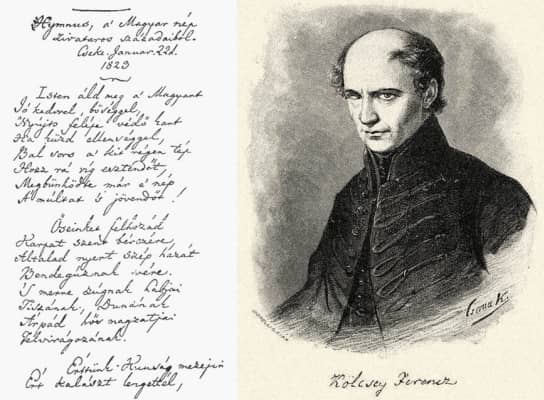 Hymnus, a' Magyar nép
zivataros századaiból.
Cseke. Januar. 22d.
1823
Isten áld meg a' Magyart
Jó kedvvel, bőséggel,
Nyújts feléje védő kart
Ha küzd ellenséggel,
Bal sors a' kit régen tép
Hozz rá víg esztendőt,
Megbűnhődte már e' nép
A' múltat 's jövendőt!
Őseinket felhozád
Kárpát szent bérczére,
Általad nyert szép hazát
Bendegúznak vére.
'S merre zúgnak habjai
Tiszának, Dunának
Árpád' hős magzatjai
Felvirágozának.
Értünk Kunság mezejin
Ért kalászt lengettél,
Kölcsey Ferencz